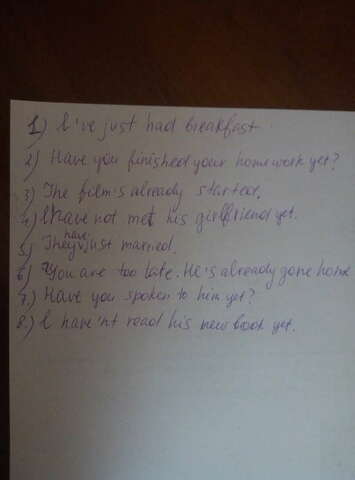 1) I've just had breakfast.
2) Have you finished your homework yet?
3) The film's already started.
4) I have not met his girlfriend yet.
5) They have just married.
6) You are too late. He's already gone home
7) Have you spoken to him yet?
8) I have'nt read his new book yet.